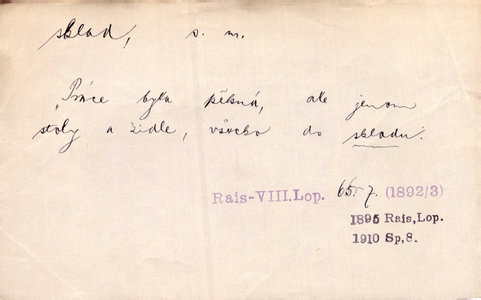 sklad, s. m.
„Práce byla pěkná, ale jenom
stoly a židle, všecko do skladu.“
Rais-VIII.Lop. 65.7. (1892/3)
1895 Rais,Lop.
1910 Sp,8.